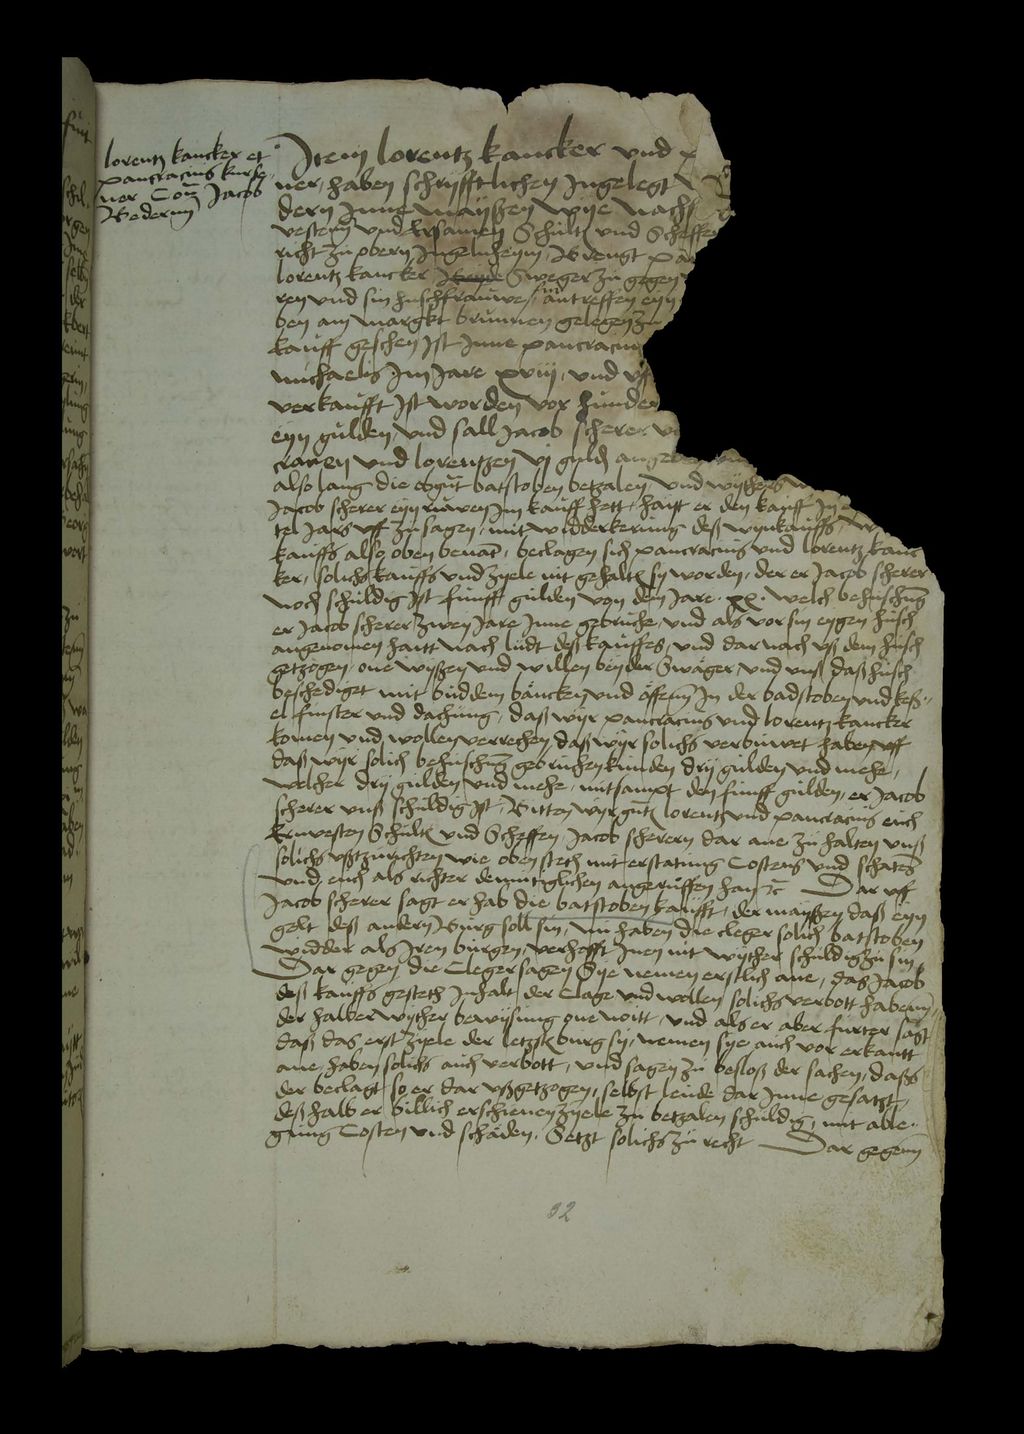 lorentz kancker et
pancracius kurse
ner Con Jacob
Bedern
Item lorentz kancker und
ner, haben schryfftlichen Ingelegt
dern Inne mayßen wye nach
vesten und Ersamen Schult und Scheffen
richt zu obern Ingelnheym, Brengt pan
lorentz kancker Sweger zu gegen
ren und sin huschfrauwe, antreffen eyn
ben am margkt brunnen gelegen zu
kauff geschen Ist Inne pancracius
michaelis Im Jare xviij, und
verkaufft Ist worden vor hunder
eyn gulden, und sall Jacob scherer
cracien und lorentzen vj guld
also lang die obgut batstoben betzalen, und wythers
Jacob scherer eyn ruwen Im kauff hett, hait er den kauff In
tel Jars uff zu sagen, mit widderkerung deß wynkauffs
kauffs also oben benant, beclagen sich pancracius und lorentz kanc
ker, solichs kauffs und zyele nit gehalten sy worden, der er Jacob scherer
noch schuldig Ist funff gulden von dem Jare xx. welch behuschung
er Jacob scherer zwey Jare Inne gebruche, und als vor sin eygen husch
angenomen haitt nach ludt deß kauffes, und dar nach uß dem husch
getzogen, one wyßen und willen beyder Swäger, und unß daß husch
beschediget mit buddem bäncken und äffenn In der badstoben und keß
el finster und dachung, daß wyr pancracius und lorentz kancker
komen und wollen verrechen daß wyr solichs verbuwet haben uff
daß wyr solich behuschung gebruchen kunden dry gulden und mehe,
welcher dry gulden und mehe, mitsampt den funff gulden, er Jacob
scherer unß schuldig Ist, Bitten wyr lorentz und pancracius euch
Ernvesten Schult und Scheffen Jacob scherern dar ane zu halten unß
solichs ußtzurichten wie oben steth mit erstatung Costens und schatens
und euch als richter demutiglichen angeruffen han etc Dar uff
Jacob scherer sagt er hab die batstoben kaufft, der mayßen daß eyn
gelt deß andern Burg soll sin, nu haben die cleger solich batstoben
widder als Iren burgen, verhofft Inen nit wyther schuldig zu sin
Dar gegen die Cleger sagen Sye nemen erstlich ane, das Jacob
deß kauffs gesteth Inhalt der Clage und wollen solichs verbott haben,
der halber wyther bewysung one noitt, und als er aber furter sagt
daß das erst zyele der letzst burg sy, nemen sye auch vor erkantt
ane, haben solichs auch verbott, und sagen zu besloß der sachen, daß
der beclagt so er dar ußgetzogen, selbst leude dar Inne gesatzt,
deß halb er billich erschienen zyele zu betzalen schuldig, mit able
gung Costen und schäden. Setzt solichs zu recht Dar gegenn
32